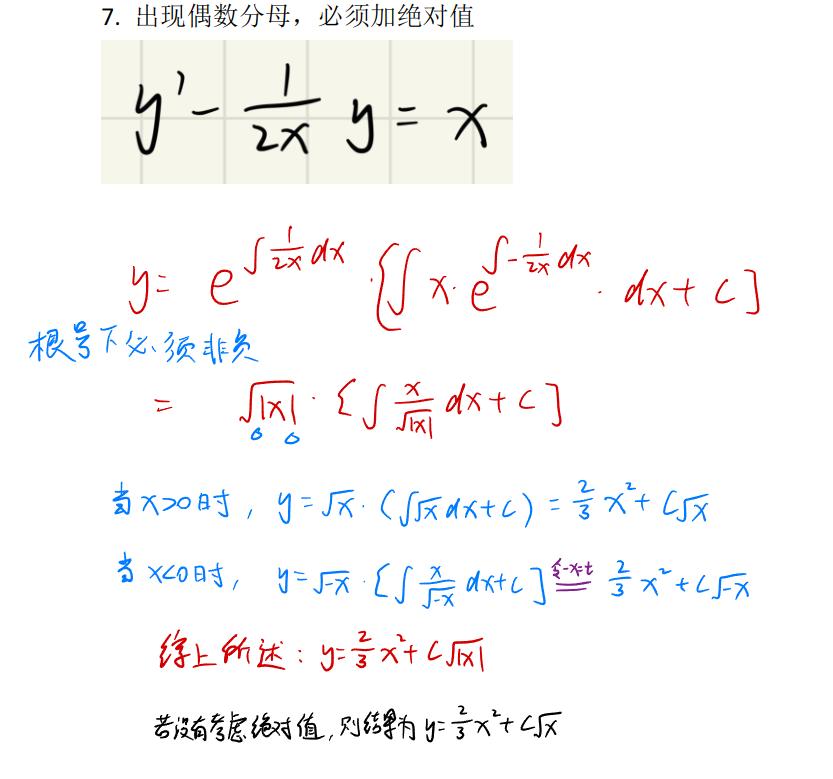 7. 出现偶数分母，必须加绝对值
y' - \frac{1}{2x} y = x
y = e^{\int \frac{1}{2x} dx} \cdot \{ \int x \cdot e^{\int -\frac{1}{2x} dx} \cdot dx + C ]
根号下必须非负
= \sqrt{|x|} \cdot \{ \int \frac{x}{\sqrt{|x|}} dx + C ]
当 x>0 时, y = \sqrt{x} \cdot ( \int \sqrt{x} dx + C ) = \frac{2}{3} x^2 + C\sqrt{x}
当 x<0 时, y = \sqrt{-x} \cdot [ \int \frac{x}{\sqrt{-x}} dx + C ] \xlongequal{令-x=t} \frac{2}{3} x^2 + C\sqrt{-x}
综上所述: y = \frac{2}{3} x^2 + C\sqrt{|x|}
若没有考虑绝对值, 则结果为 y = \frac{2}{3} x^2 + C\sqrt{x}